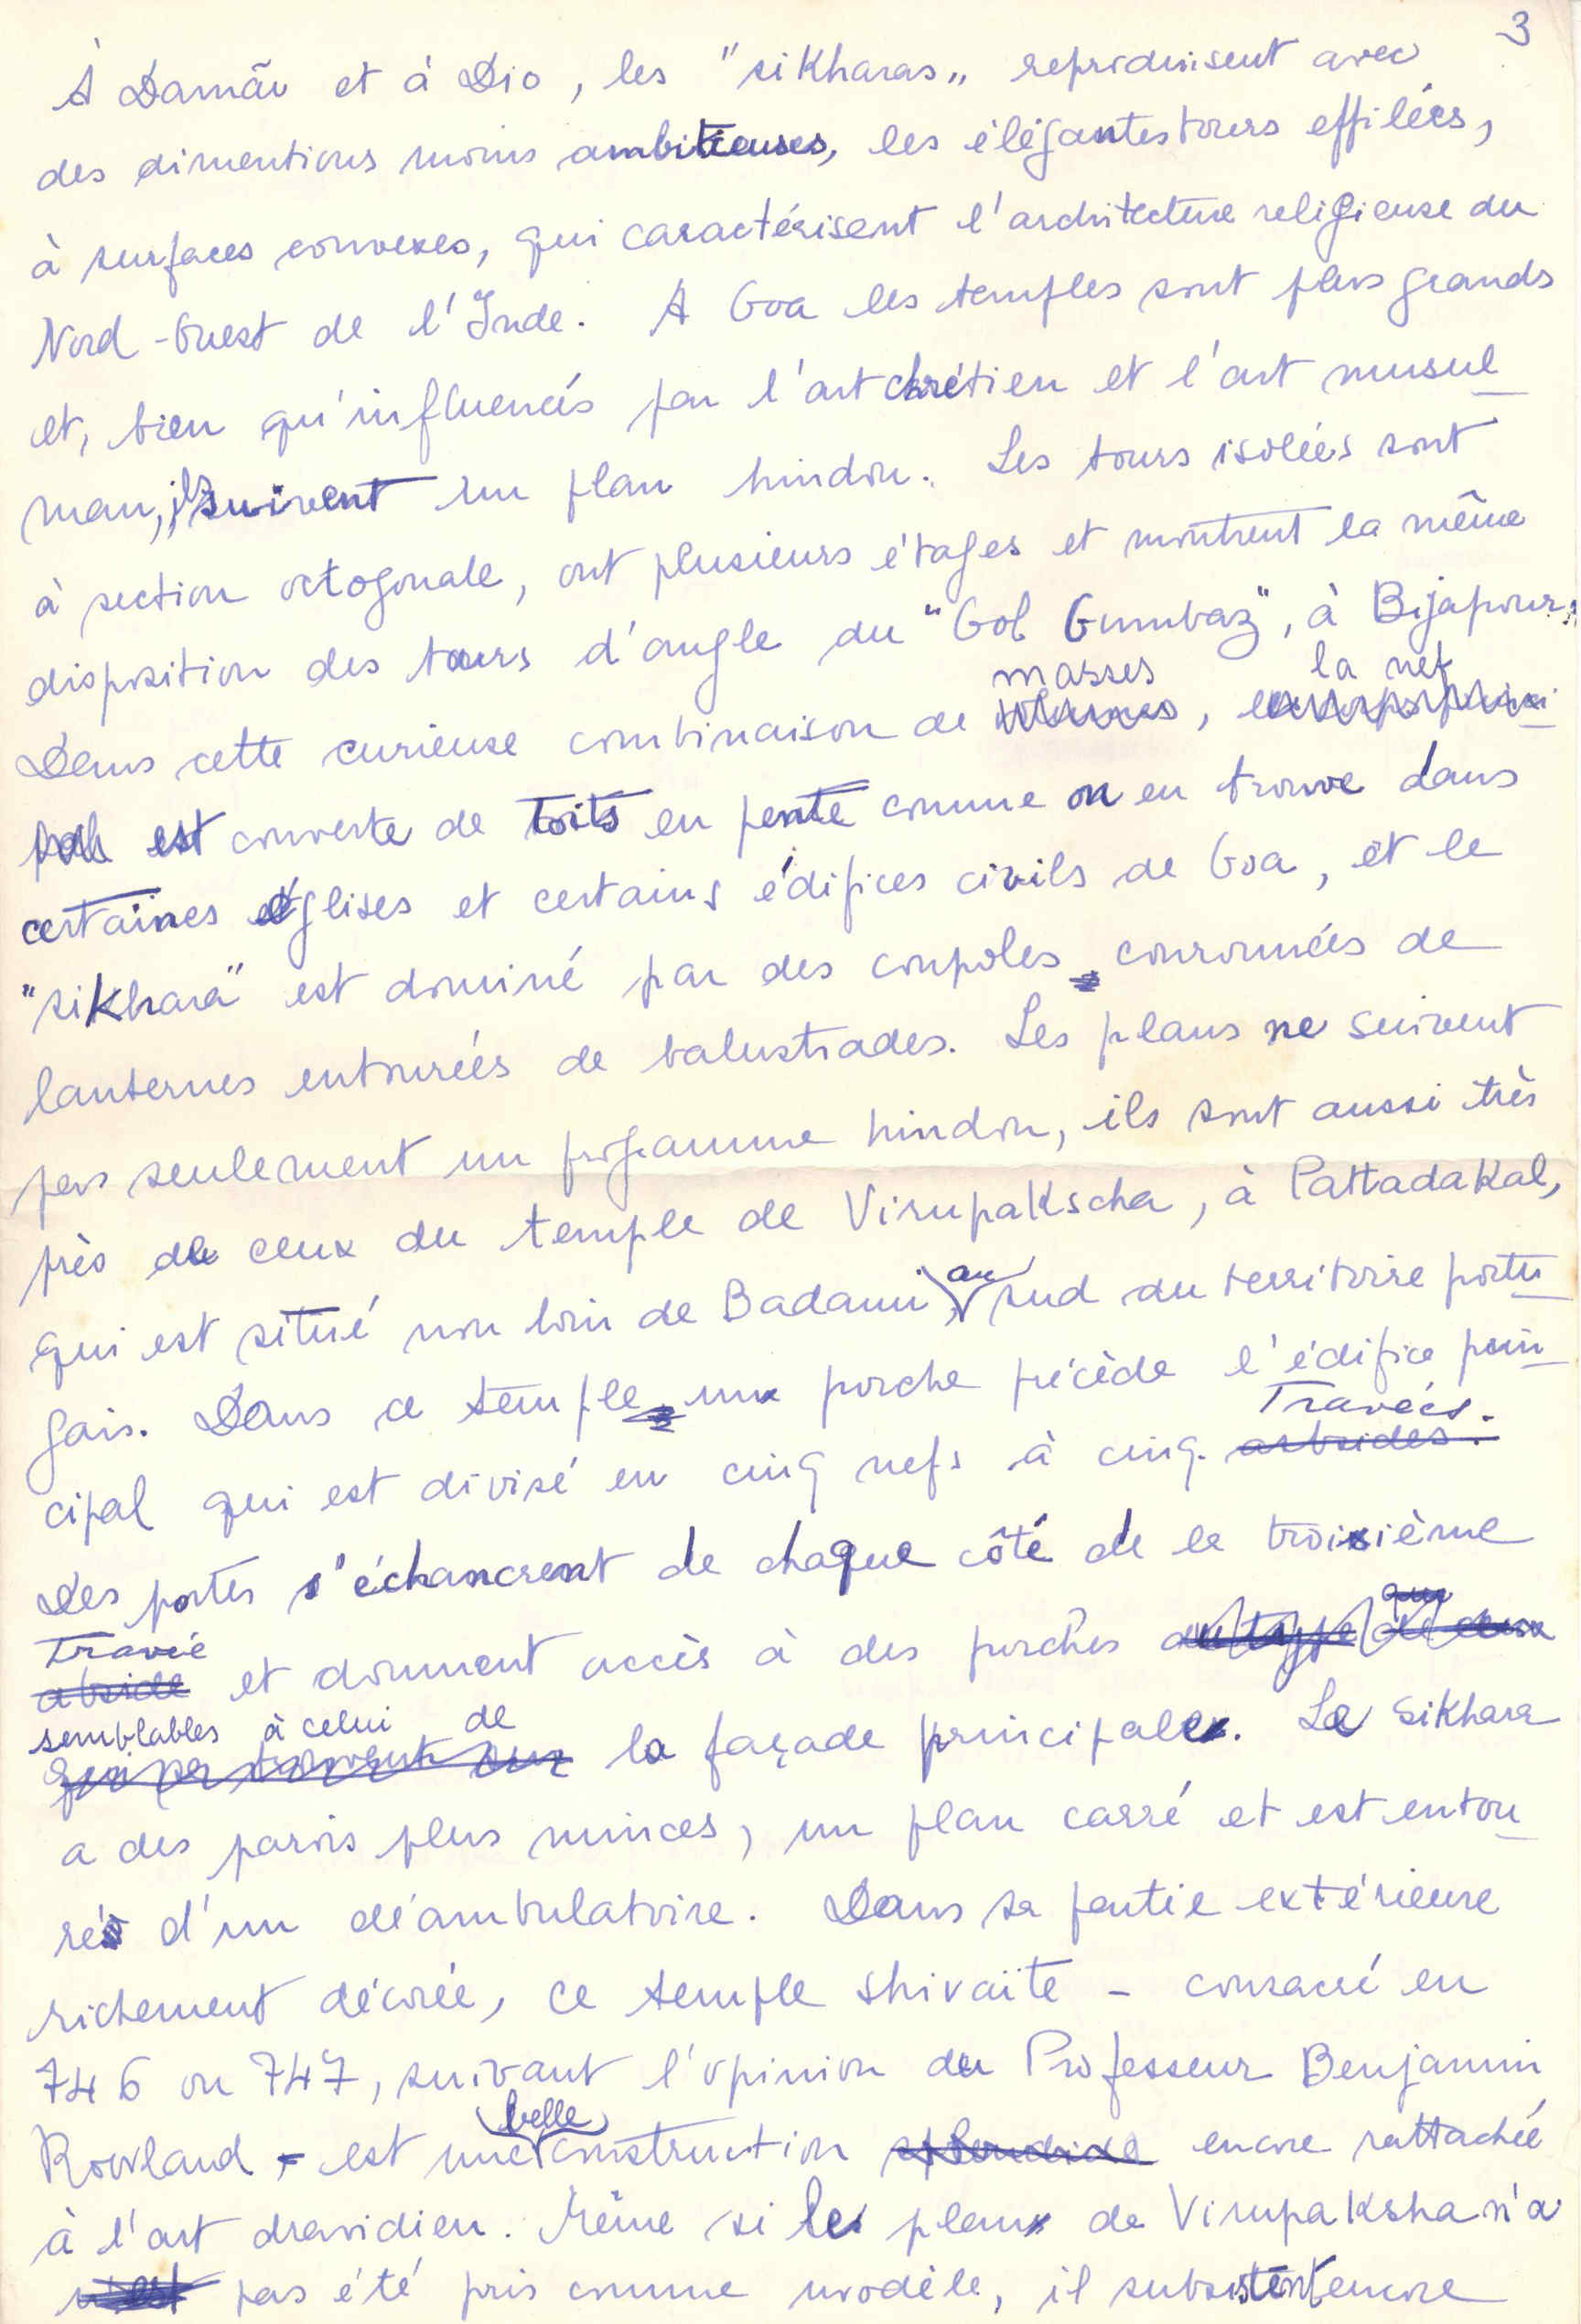 3
À Damão et à Dio, les "sikharas" reproduisent avec
des dimentions moins ambitieuses, les élégantes tours effilées,
à surfaces convexes, qui caractérisent l'architecture religieuse du
Nord-Ouest de l'Inde. A Goa les temples sont plus grands
et, bien qu'influencés par l'art chrétien et l'art musul
man, ils suivent un plan hindou. Les tours isolées sont
à section octogonale, ont plusieurs étages et montrent la même
disposition des tours d'angle du "Gol Gumbaz", à Bijapour.
masses la nef
Dans cette curieuse combinaison de ,
est couverte de toits en pente comme on en trouve dans
certaines églises et certains édifices civils de Goa, et le
"sikhara" est dominé par des coupoles couronnées de
lanternes entourées de balustrades. Les plans ne suivent
pas seulement un programme hindou, ils sont aussi très
près de ceux du temple de Virupakscha, à Pattadakal,
qui est situé non loin de Badami, au sud du territoire portu
gais. Dans ce temple un porche précède l'édifice prin
Travées.
cipal qui est divisé en cinq nefs à cinq absides.
Des portes s'échancrent de chaque côté de la troisième
Travée que
abside et donnent accès à des porches du type de ceux
semblables à celui de
qui se trouvent sur la façade principale. Le sikhara
a des parois plus minces, un plan carré et est entou
ré d'un déambulatoire. Dans sa partie extérieure
richement décorée, ce temple shivaïte - consacré en
746 ou 747, suivant l'opinion du Professeur Benjamin
belle
Rowland - est une construction splendide encore rattachée
à l'art dravidien. Même si le plan de Virupaksha n'a
n'est pas été pris comme modèle, il subsistent encore